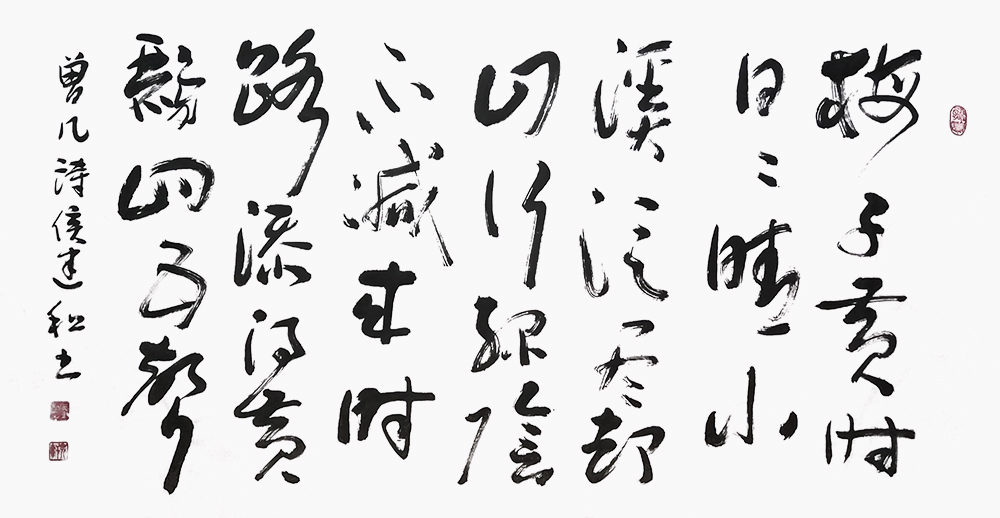 梅子黄时
日日晴小
溪泛尽却
山行绿陰
不減来时
路添得黄
鹂四五聲
曾几詩侯建书